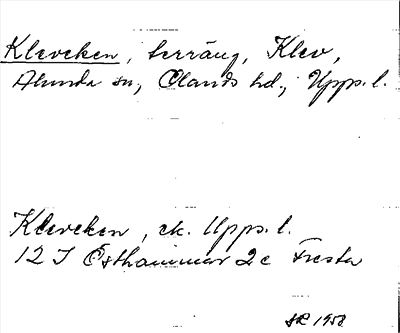 Kleveken, terräng, Klev,
Alunda sn, Olands hd., Upps. l.
Kleveken, ek. Upps. l.
12 I Östhammar 2c Fresta
SR 1958